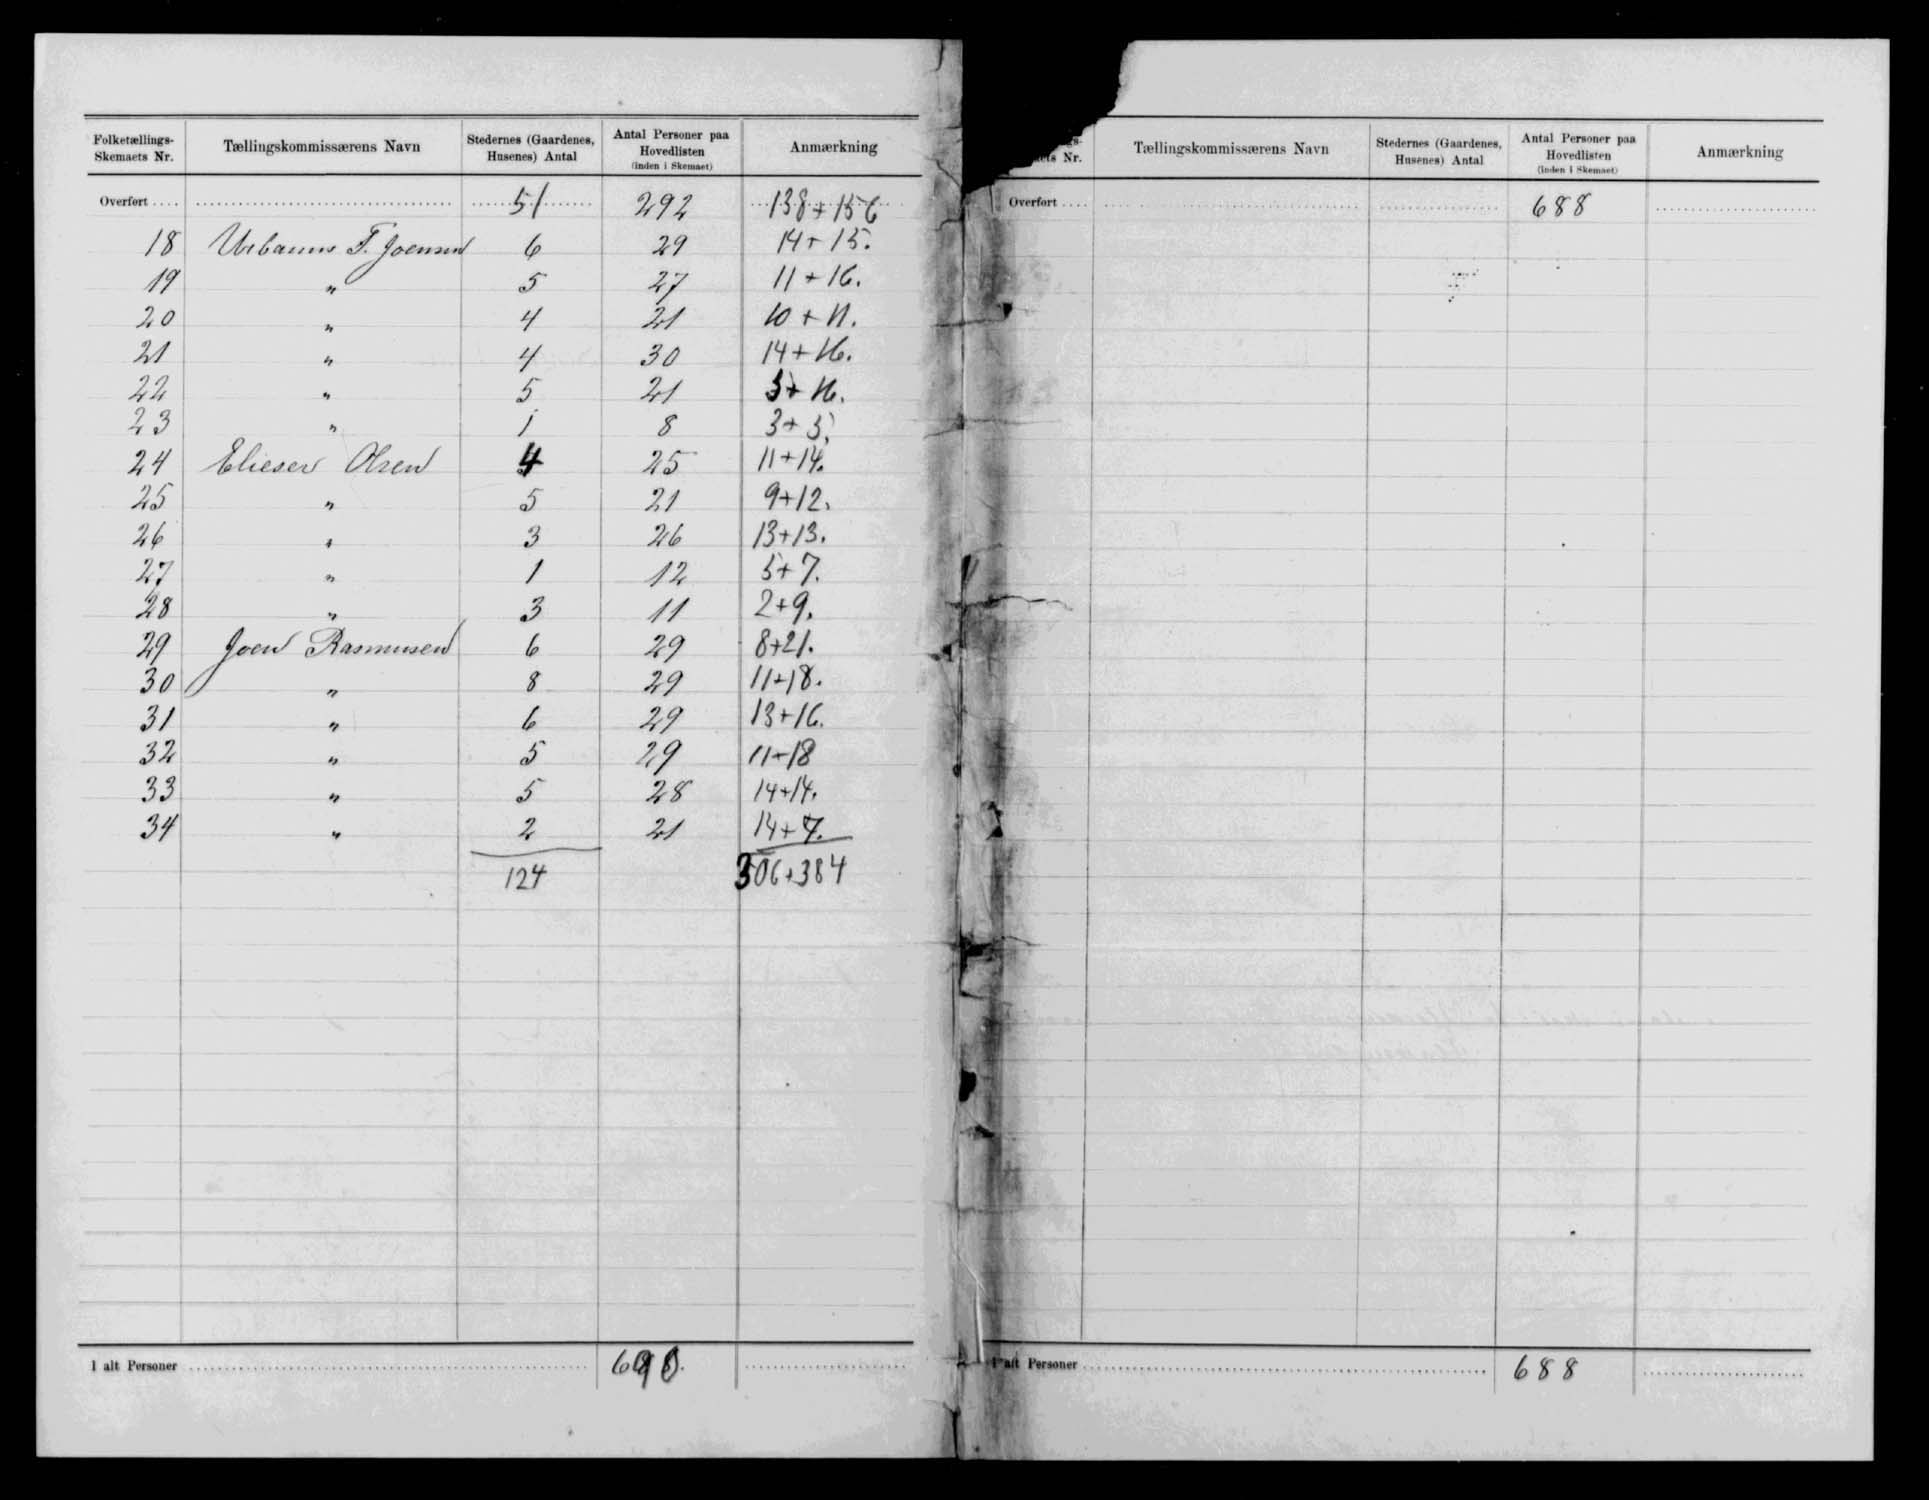 Folketællings-Skemaets Nr. Tællingskommissærens Navn Stedernes (Gaardenes, Husenes) Antal Antal Personer paa Hovedlisten (inden i Skemaet) Anmærkning
Overført .... 51 292 138 + 156
18 Urbanus F. Joensen 6 29 14 + 15.
19 " 5 27 11 + 16.
20 " 4 21 10 + 11.
21 " 4 30 14 + 16.
22 " 5 21 5 + 16.
23 " 1 8 3 + 5.
24 Elieser Olsen 4 25 11 + 14.
25 " 5 21 9 + 12.
26 " 3 26 13 + 13.
27 " 1 12 5 + 7.
28 " 3 11 2 + 9.
29 Joen Rasmusen 6 29 8 + 21.
30 " 8 29 11 + 18.
31 " 6 29 13 + 16.
32 " 5 29 11 + 18
33 " 5 28 14 + 14.
34 " 2 21 14 + 7.
124 306 + 384
I alt Personer 690.
Nr. Tællingskommissærens Navn Stedernes (Gaardenes, Husenes) Antal Antal Personer paa Hovedlisten (inden i Skemaet) Anmærkning
Overført .... 688
I alt Personer 688